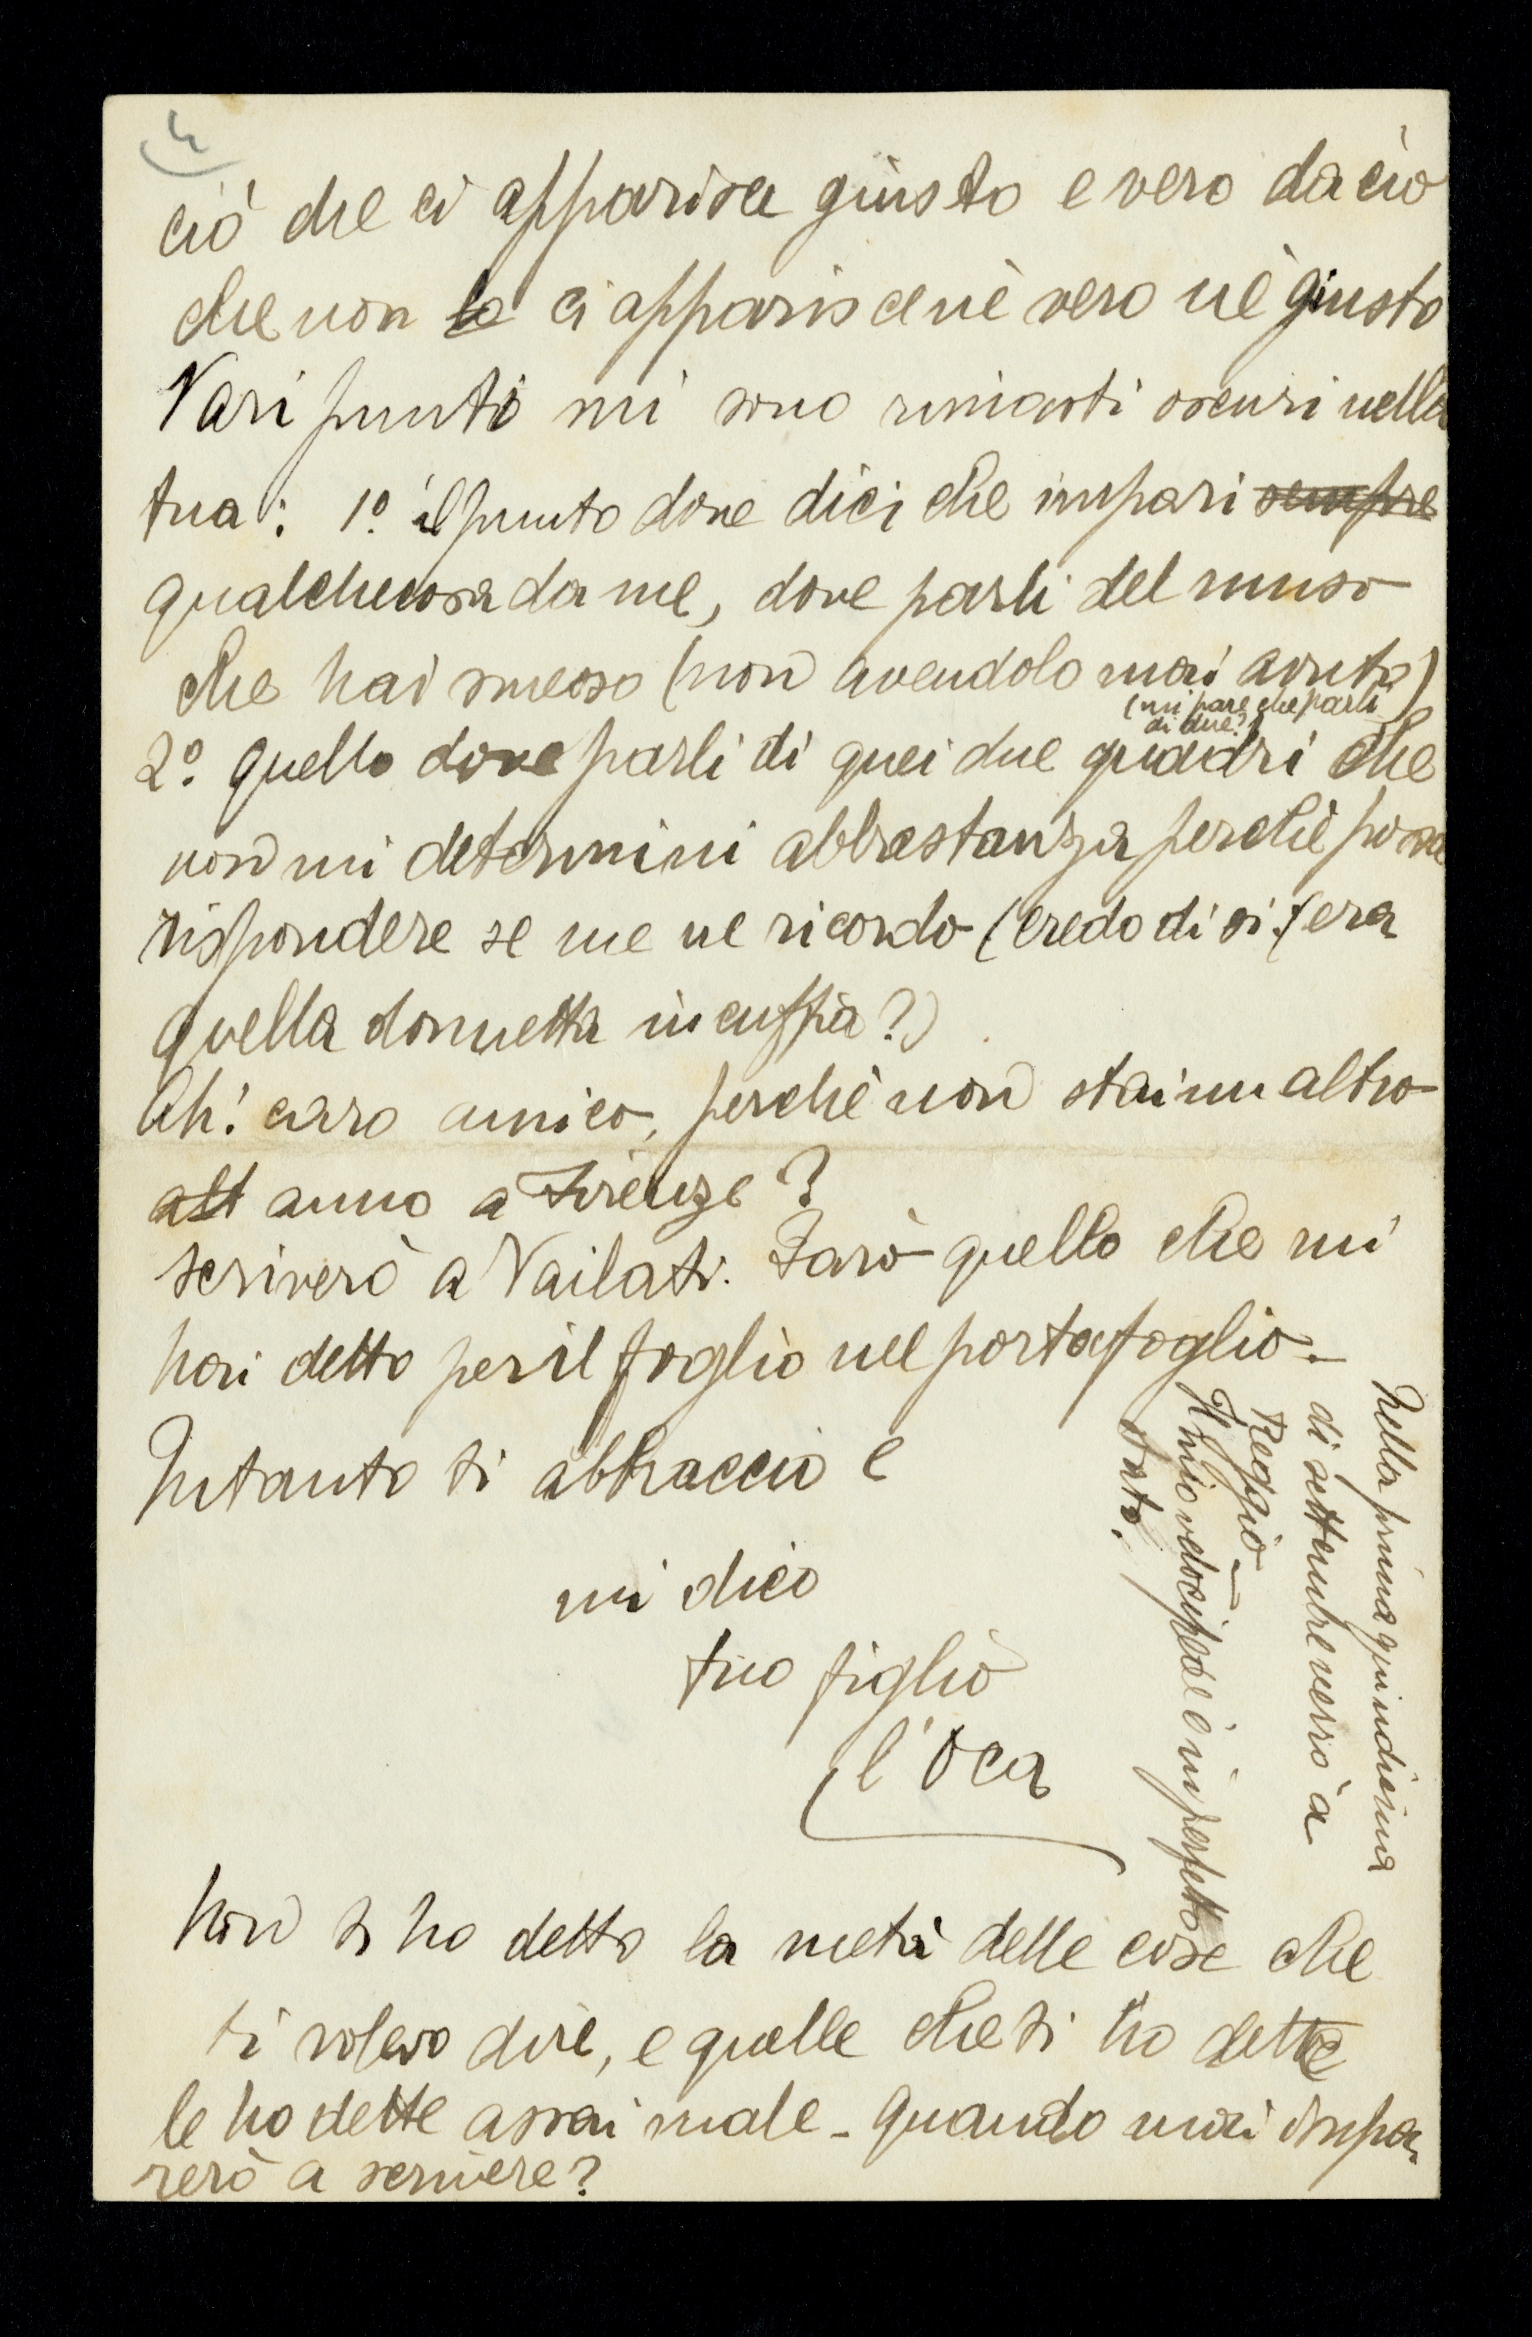 4
ciò che ci apparisce giusto e vero da ciò
che non lo ci apparisce nè vero nè giusto
Vari punti mi sono rimasti oscuri nella
tua: 1º. il punto dove dici che impari sempre
qualchecosa da me, dove parli del muso
che hai smesso (non avendolo mai avuto)
(mi pare che parli
di due?)
2º. quello dove parli di quei due quadri che
non mi determini abbastanza perchè possa
rispondere se me ne ricordo (credo di si.) (era
quella donnetta in cuffia?)
Ah! caro amico, perchè non stai un altro
alt anno a Firenze?
scriverò a Vailati. Farò quello che mi
hai detto per il foglio nel portafoglio.–
Intanto ti abbraccio e
mi dico
tuo figlio
l'Oca
Nella prima quindicina
di settembre verrò a
Reggio –
Il mio velocipede è in perfetto
stato.
Non ti ho detto la metà delle cose che
ti volevo dire, e quelle che ti ho dette
le ho dette assai male – Quando mai impa-
rerò a scrivere?